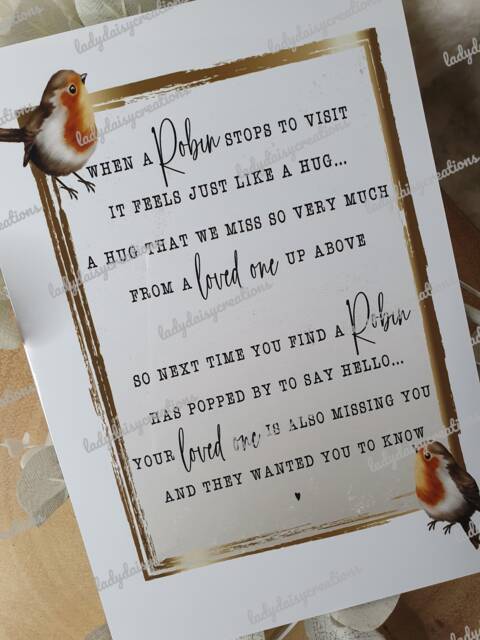 WHEN A Robin STOPS TO VISIT
IT FEELS JUST LIKE A HUG...
A HUG THAT WE MISS SO VERY MUCH
FROM A loved one UP ABOVE
SO NEXT TIME YOU FIND A Robin
HAS POPPED BY TO SAY HELLO...
YOUR loved one IS ALSO MISSING YOU
AND THEY WANTED YOU TO KNOW
ladydaisycreations